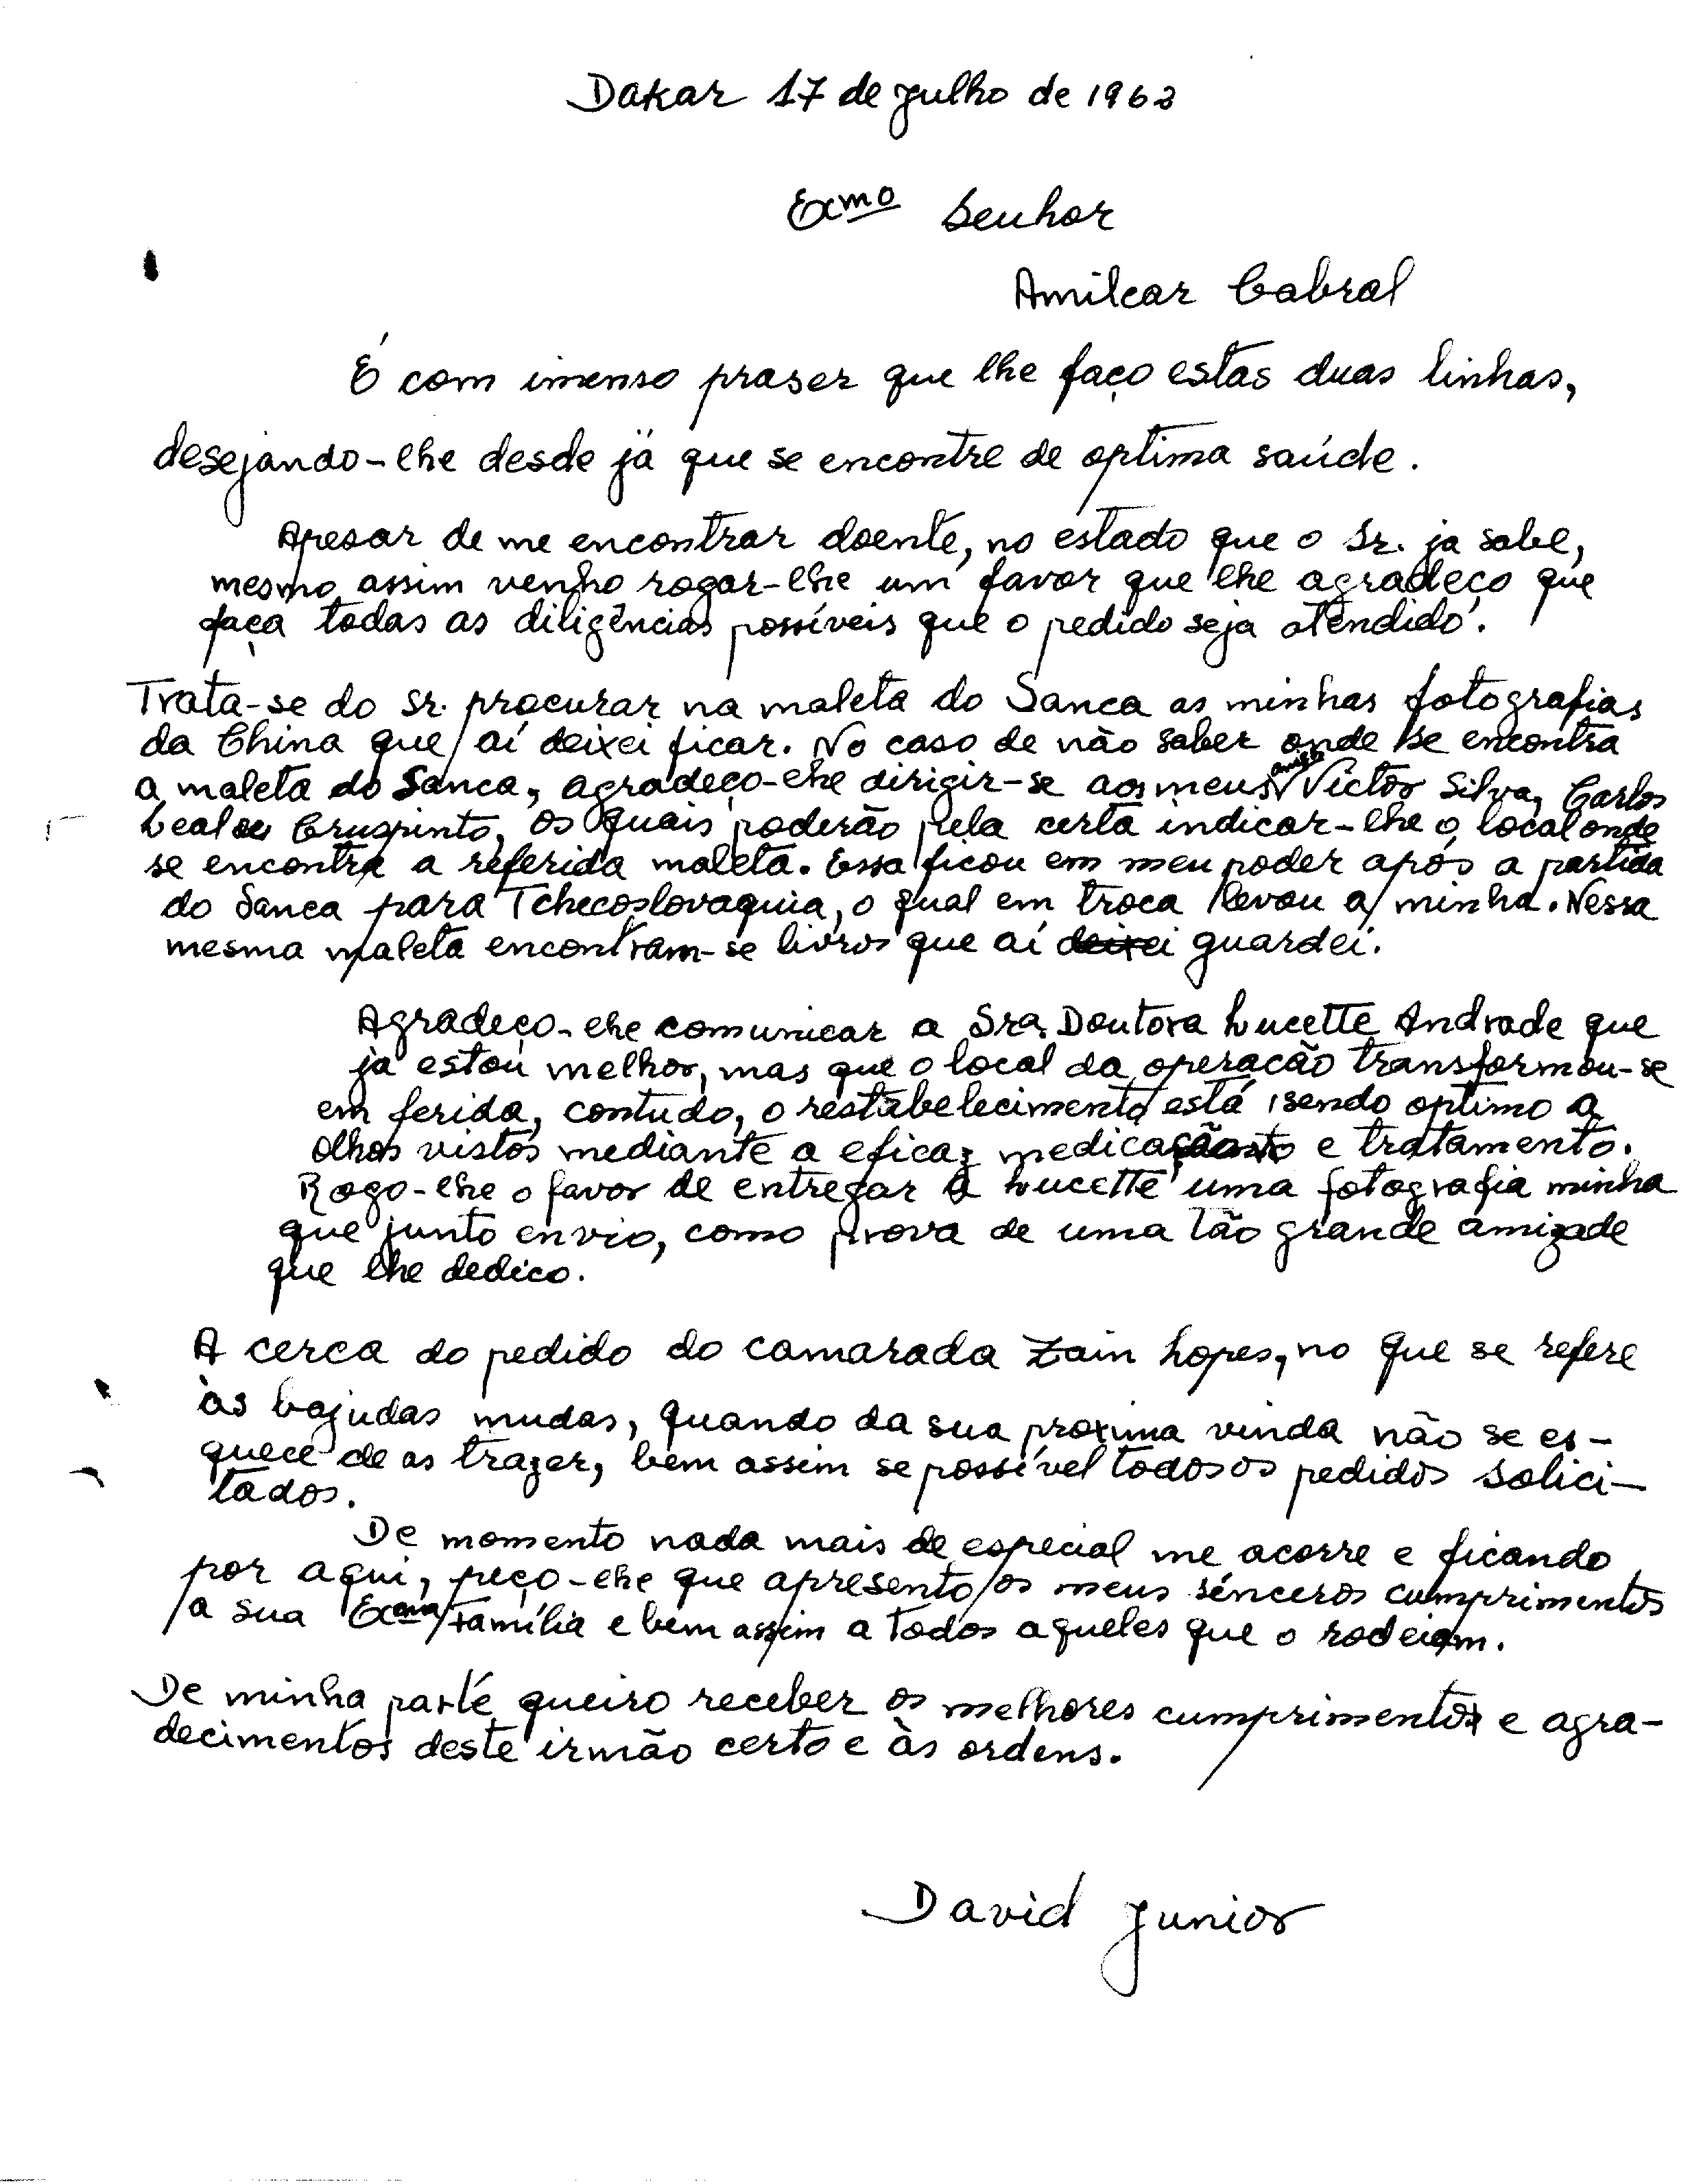 Dakar 17 de Julho de 1962
Exmo Senhor
Amilcar Cabral
É com imenso praser que lhe faço estas duas linhas,
desejando-lhe desde já que se encontre de optima saúde.
Apesar de me encontrar doente, no estado que o Sr. ja sabe,
mesmo assim venho rogar-lhe um favor que lhe agradeço que
faça todas as diligências possíveis que o pedido seja atendido.
Trata-se do Sr. procurar na maleta do Sanca as minhas fotografias
da China que aí deixei ficar. No caso de não saber onde se encontra
a maleta do Sanca, agradeço-lhe dirigir-se aos meus amigos Victor Silva, Carlos
Leal ou Cruspinto, os quais poderão pela certa indicar-lhe o local onde
se encontra a referida maleta. Essa ficou em meu poder após a partida
do Sanca para Tchecoslovaquia, o qual em troca levou a minha. Nessa
mesma maleta encontram-se livros que aí deixei guardei.
Agradeço-lhe comunicar a Sra. Doutora Lucette Andrade que
ja estou melhor, mas que o local da operação transformou-se
em ferida, contudo, o restabelecimento está sendo optimo a
olhos vistos mediante a eficaz medicação e tratamento.
Rogo-lhe o favor de entregar a Lucette uma fotografia minha
que junto envio, como prova de uma tão grande amizade
que lhe dedico.
A cerca do pedido do camarada Zain Lopes, no que se refere
às bajudas mudas, quando da sua proxima vinda não se es-
quece de as trazer, bem assim se possível todos os pedidos solici-
tados.
De momento nada mais de especial me acorre e ficando
por aqui, peço-lhe que apresento os meus sinceros cumprimentos
a sua Exma Família e bem assim a todos aqueles que o rodeiam.
De minha parte queiro receber os melhores cumprimentos e agra-
decimentos deste irmão certo e às ordens.
David Junior